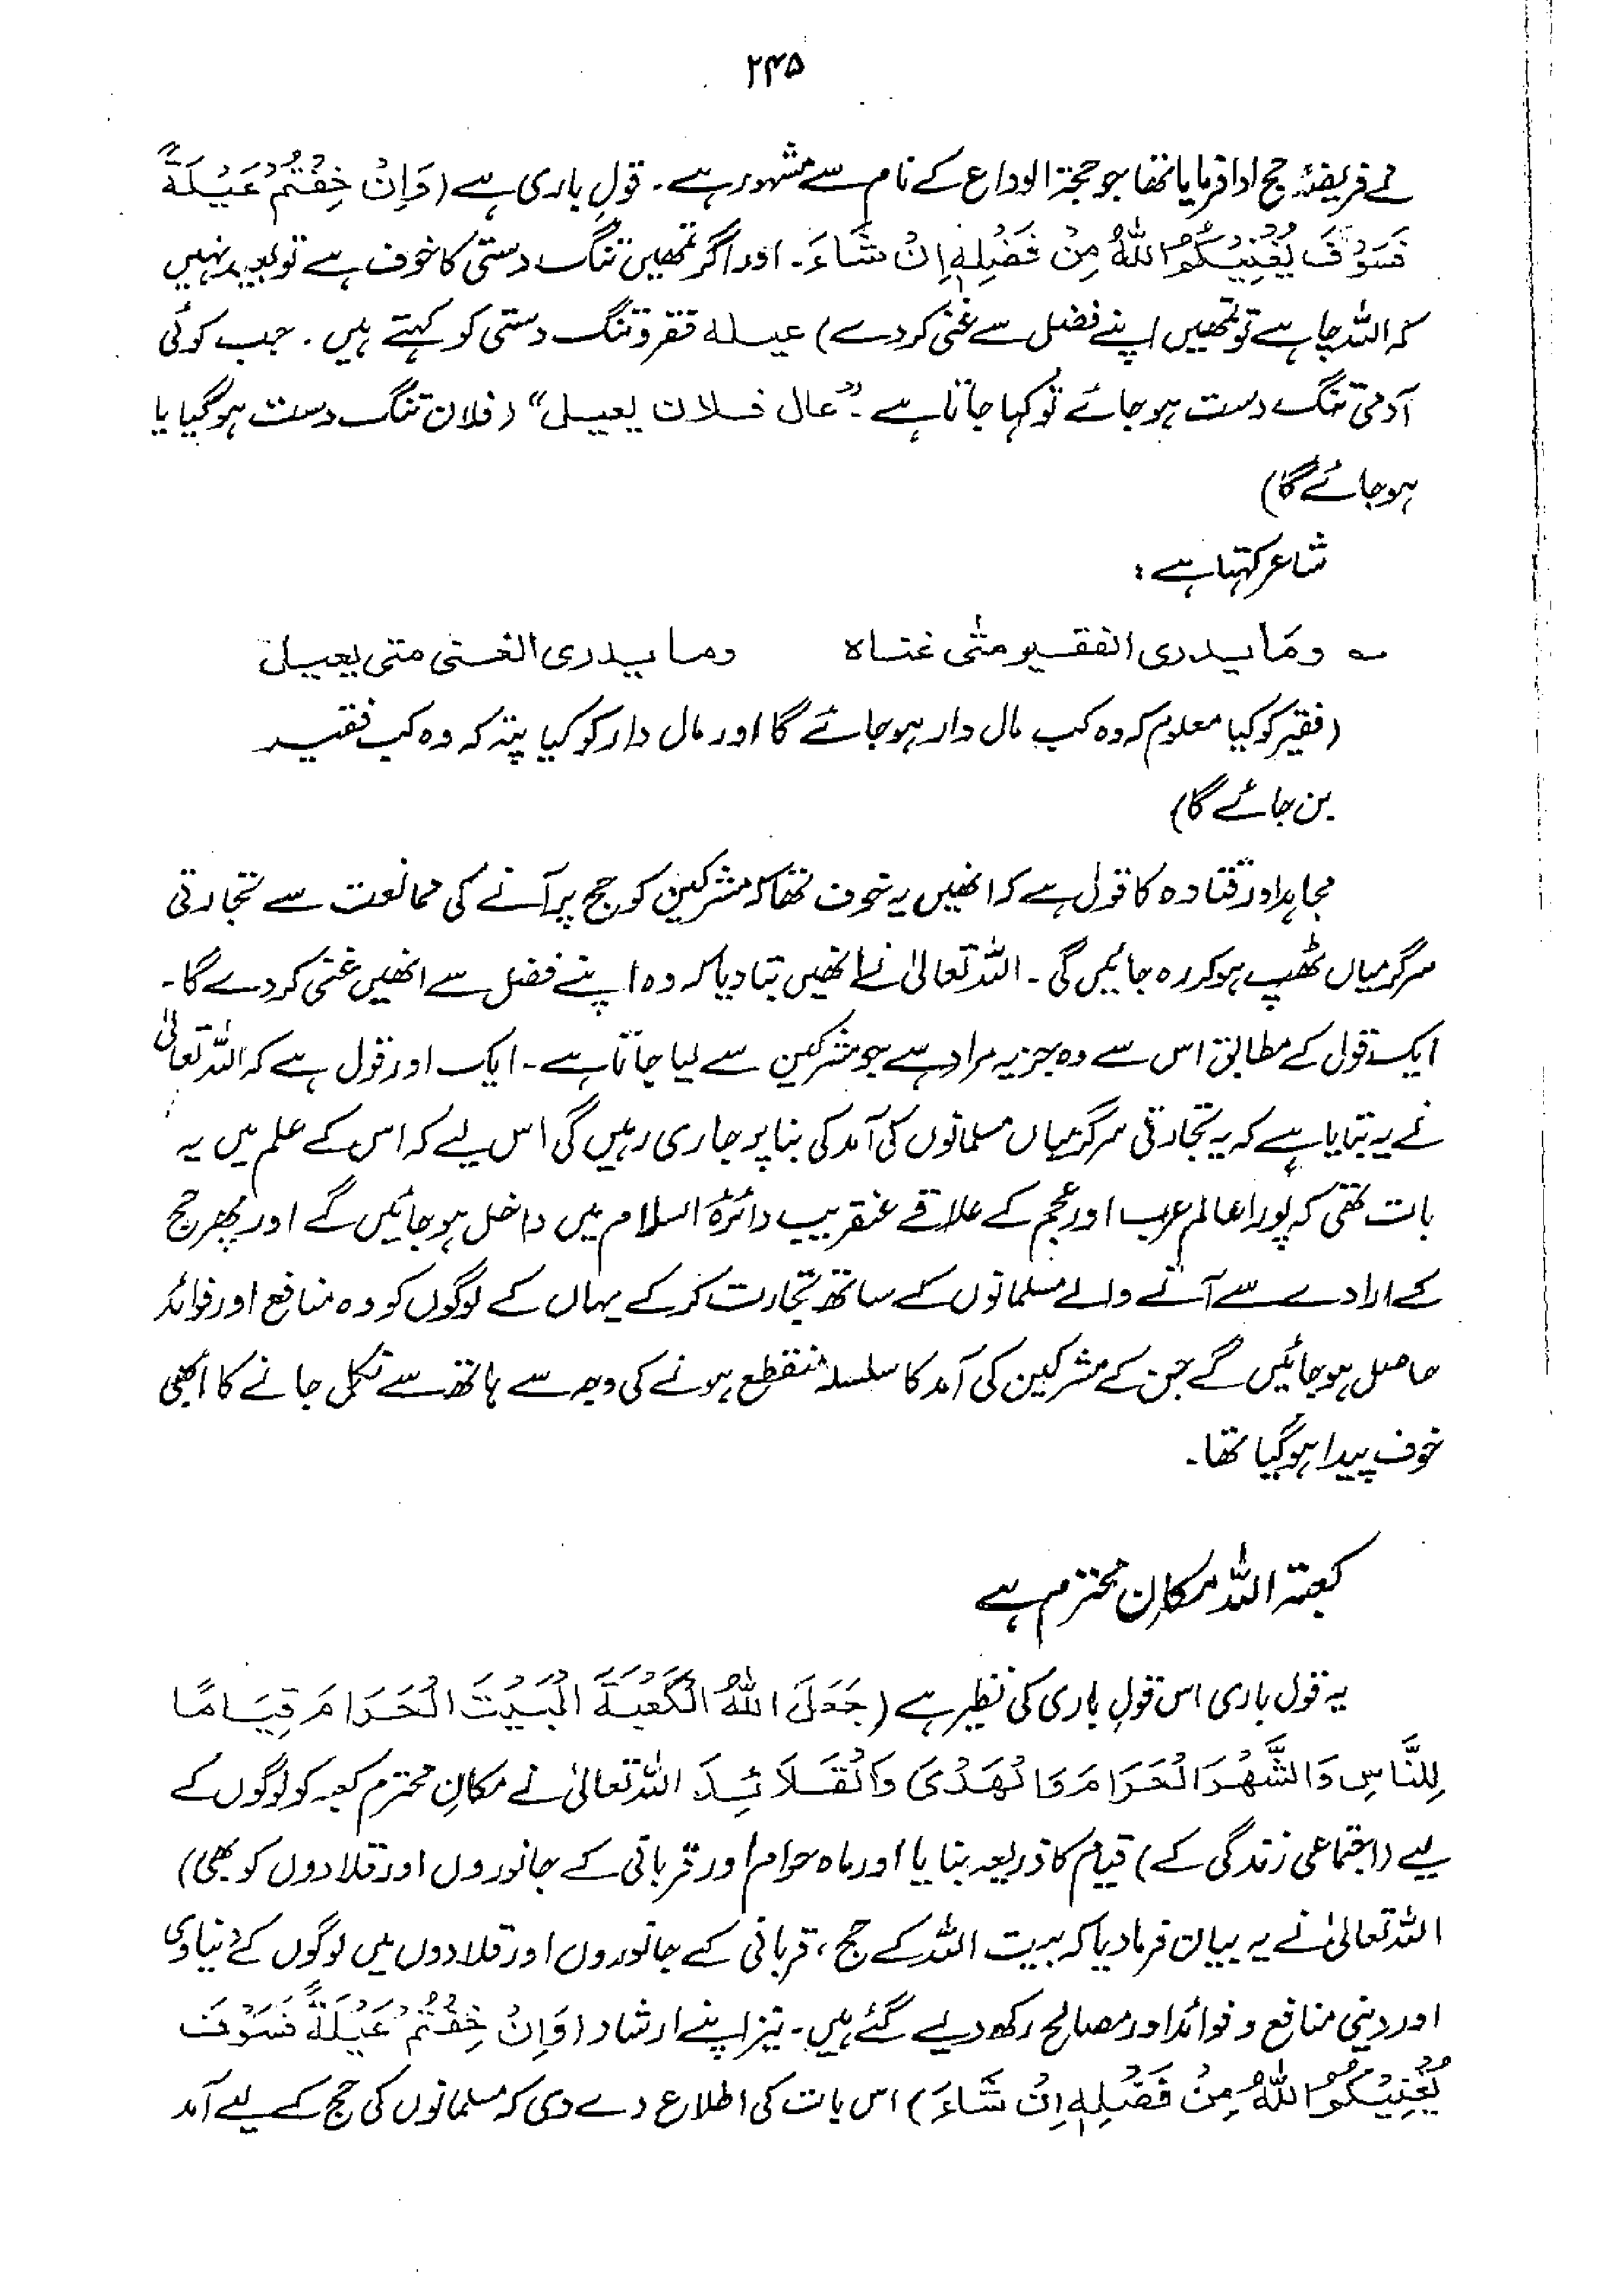 ۲۴۵
نے فریضۂ حج ادا فرمایا تھا جو حجۃ الوداع کے نام سے مشہور ہے۔ قولِ باری ہے (وَاِنْ خِفْتُمْ عَيْلَةً
فَسَوْفَ يُغْنِيْكُمُ اللّٰهُ مِنْ فَضْلِهٖ اِنْ شَاءَ۔ اور اگر تمھیں تنگ دستی کا خوف ہے تو بعید نہیں
کہ اللہ چاہے تو تمھیں اپنے فضل سے غنی کر دے) عیلہ فقر و تنگ دستی کو کہتے ہیں۔ جب کوئی
آدمی تنگ دست ہو جائے تو کہا جاتا ہے۔ "عال فلان یعیل" (فلان تنگ دست ہو گیا یا
ہو جائے گا)
شاعر کہتا ہے:
؎ وما یدری الفقیر متٰی غناہ وما یدری الغنی متی یعیل
(فقیر کو کیا معلوم کہ وہ کب مال دار ہو جائے گا اور مال دار کو کیا پتہ کہ وہ کب فقیر
بن جائے گا)
مجاہد اور قتادہ کا قول ہے کہ انھیں یہ خوف تھا کہ مشرکین کو حج پر آنے کی ممانعت سے تجارتی
سرگرمیاں ٹھپ ہو کر رہ جائیں گی۔ اللہ تعالیٰ نے انھیں بتا دیا کہ وہ اپنے فضل سے انھیں غنی کر دے گا۔
ایک قول کے مطابق اس سے وہ جزیہ مراد ہے جو مشرکین سے لیا جاتا ہے۔ ایک اور قول ہے کہ اللہ تعالیٰ
نے یہ بتایا ہے کہ یہ تجارتی سرگرمیاں مسلمانوں کی آمد کی بنا پر جاری رہیں گی اس لیے کہ اس کے علم میں یہ
بات تھی کہ پورا عالم عرب اور عجم کے علاقے عنقریب دائرۂ اسلام میں داخل ہو جائیں گے اور پھر حج
کے ارادے سے آنے والے مسلمانوں کے ساتھ تجارت کر کے یہاں کے لوگوں کو وہ منافع اور فوائد
حاصل ہو جائیں گے جن کے مشرکین کی آمد کا سلسلہ منقطع ہونے کی وجہ سے ہاتھ سے نکل جانے کا ابھی
خوف پیدا ہو گیا تھا۔
کعبۃ اللہ مکانِ محترم ہے
یہ قول باری اس قولِ باری کی نظیر ہے (جَعَلَ اللّٰهُ الْكَعْبَةَ الْبَيْتَ الْحَرَامَ قِيَامًا
لِلنَّاسِ وَالشَّهْرَ الْحَرَامَ وَالْهَدْىَ وَالْقَلَائِدَ اللہ تعالیٰ نے مکانِ محترم کعبہ کو لوگوں کے
لیے (اجتماعی زندگی کے) قیام کا ذریعہ بنایا اور ماہ حرام اور قربانی کے جانوروں اور قلادوں کو بھی)
اللہ تعالیٰ نے یہ بیان فرما دیا کہ بیت اللہ کے حج، قربانی کے جانوروں اور قلادوں میں لوگوں کے دنیاوی
اور دینی منافع و فوائد اور مصالح رکھ دیے گئے ہیں۔ نیز اپنے ارشاد (وَاِنْ خِفْتُمْ عَيْلَةً فَسَوْفَ
يُغْنِيْكُمُ اللّٰهُ مِنْ فَضْلِهٖ اِنْ شَاءَ) اس بات کی اطلاع دے دی کہ مسلمانوں کی حج کے لیے آمد